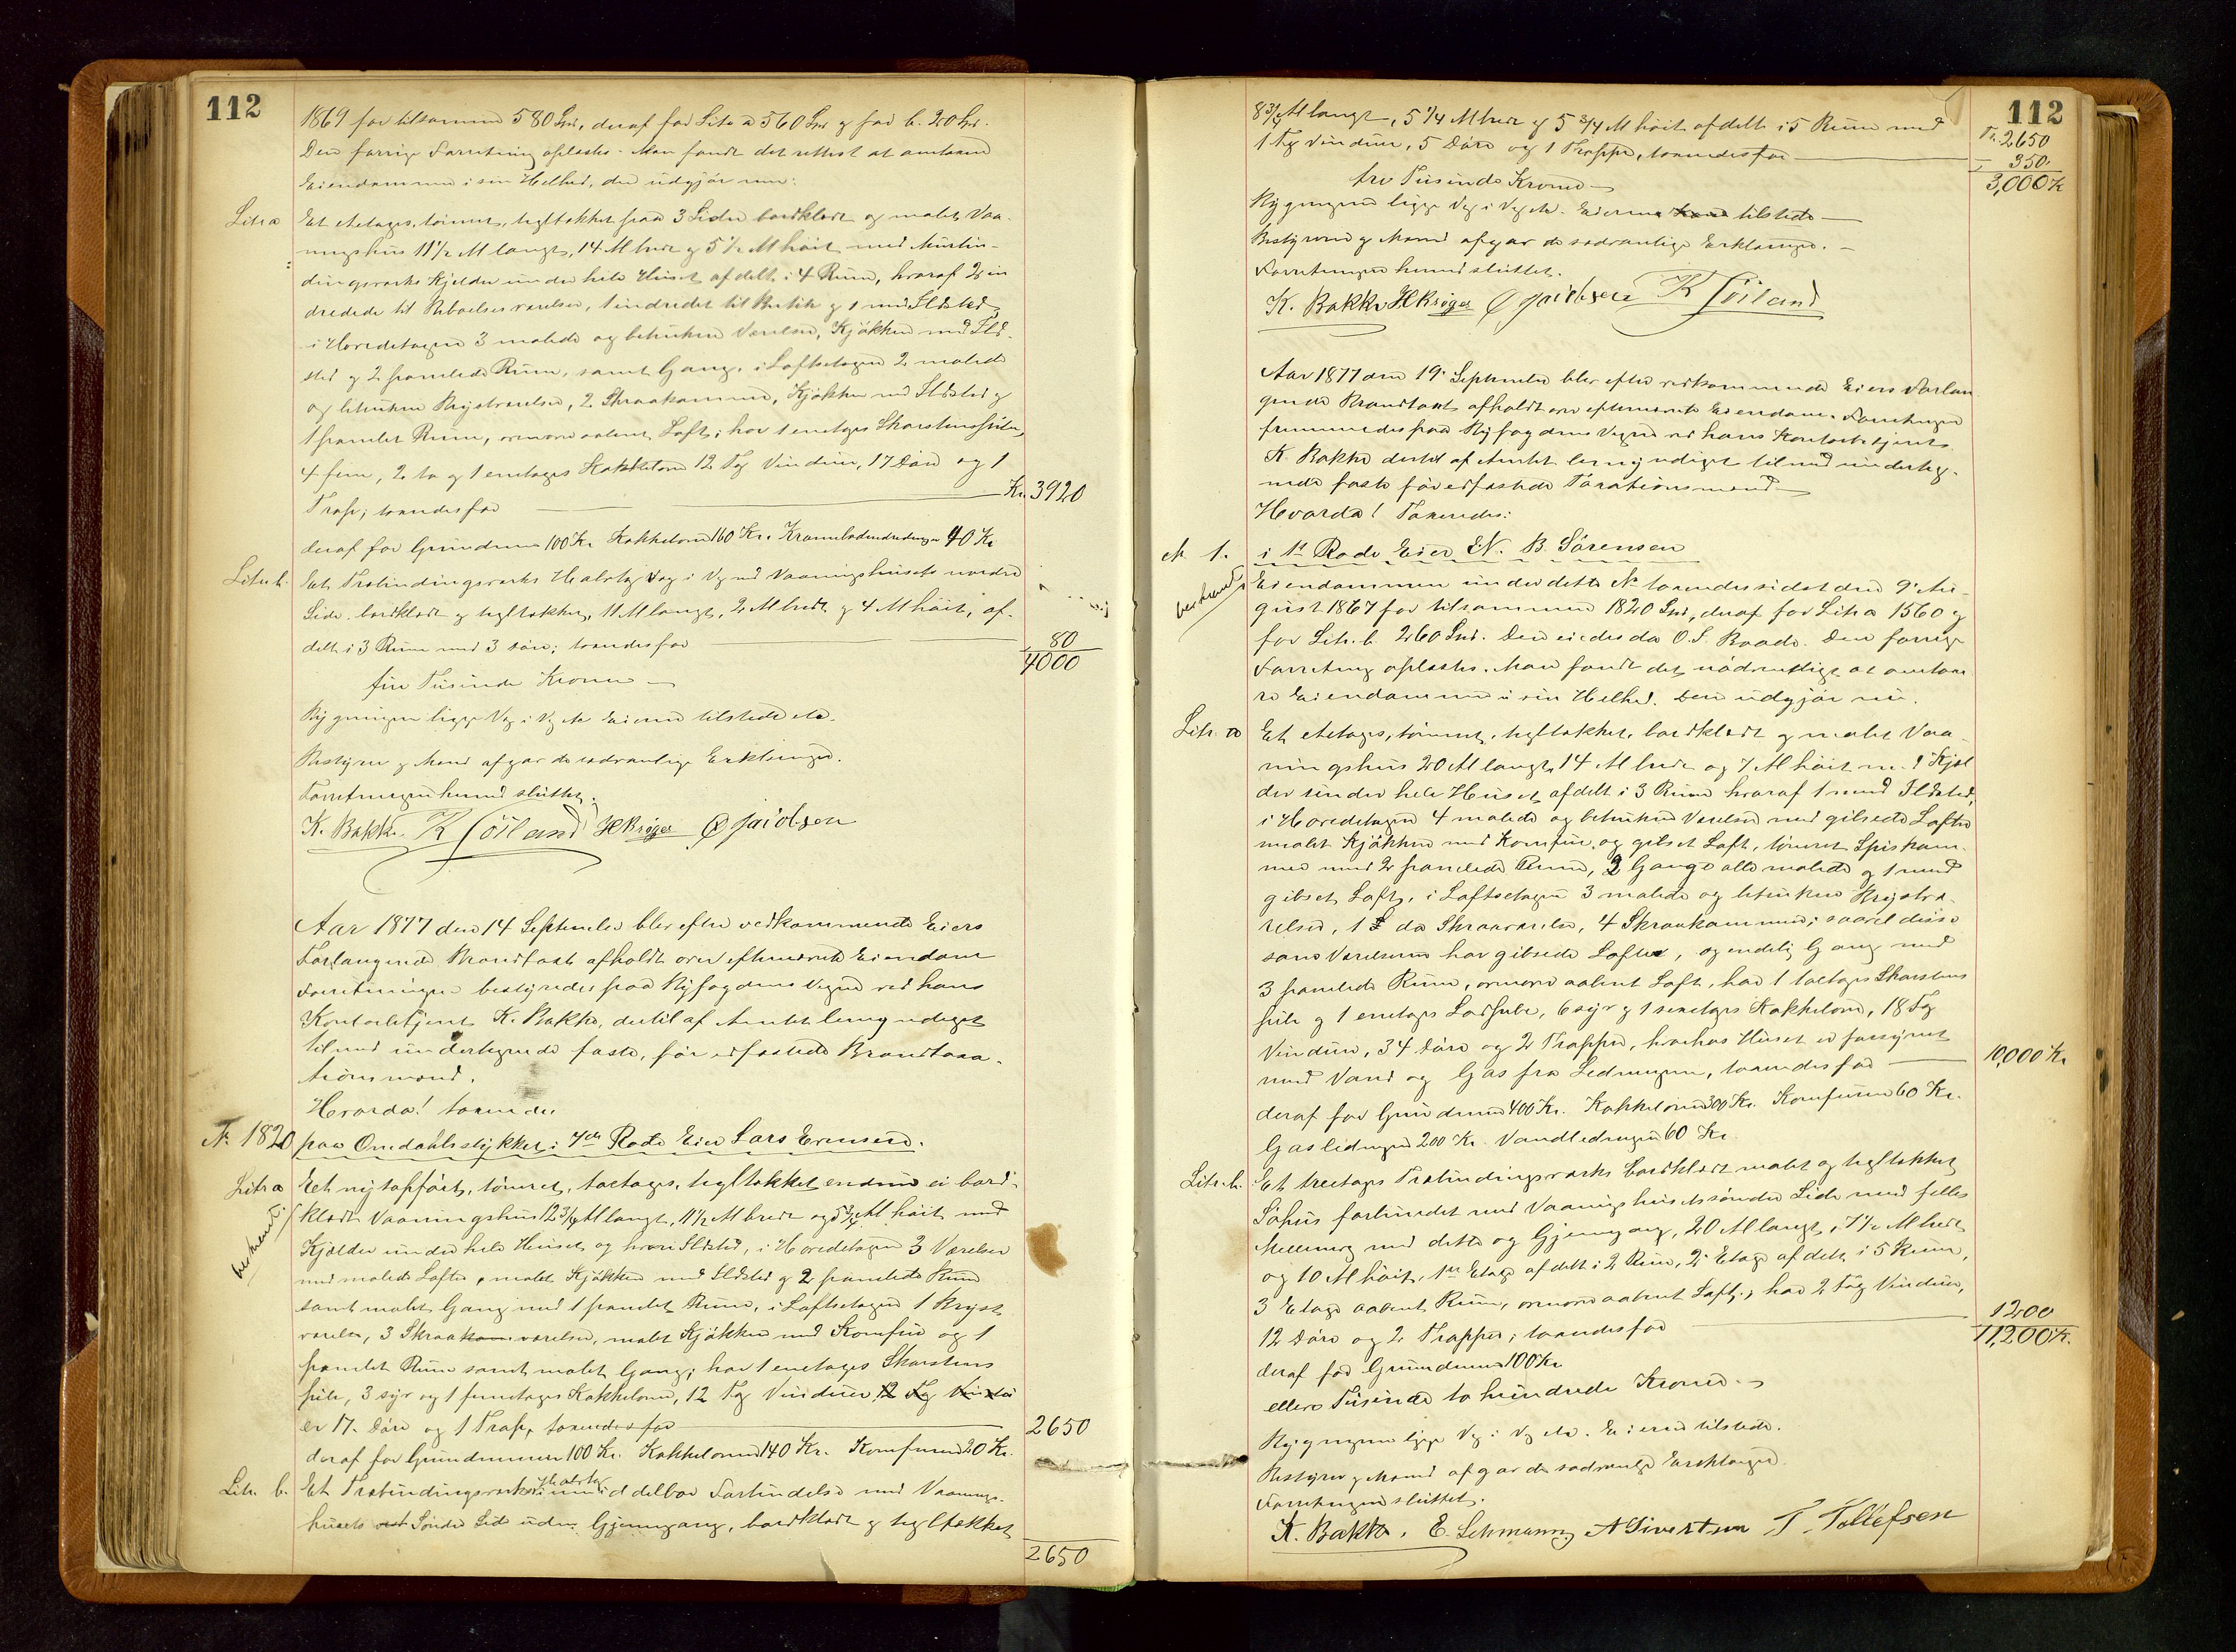 112
1869 for tilsammen 580 Spd, deraf for Litr a 560 Spd og for b. 20 Spd.
Den forrige Forretning oplæstes. Man fandt det rettest at omtaxere
Eiendommen i sin Helhed, den udgjør nu:
Litr a Et etetages, tømret, tegltækket paa 3 Sider bordklædt og malet Vaa-
ningshus 11 1/2 Al langt, 14 Al bredt og 5 1/2 Al høit med Murbin-
dingsværks Kjelder under hele Huset afdelt i 4 Rum, hvoraf 2 in
dredede til Beboelsesværelser, 1 indredet til Butik og 1 med Ildsted,
i Hovedetagen 3 malede og betrukne Værelser, Kjøkken med Ild-
sted og 2 panelede Rum, samt Gang. i Loftsetagen 2 malede
og betrukne Kvistværelser, 2 Skraakammere, Kjøkken med Ildsted og
1 panelet Rum, ovenover aabent Loft; har 1 enetages Skorstenspibe,
4 fem, 2 to og 1 enetages Kakkelovn 12 Fag Vinduer, 17 Døre og 1
Trap; taxeredes for Kr. 3920
deraf for Grundmuren 100 Kr. Kakkelovne 160 Kr. Kramboderedningen 40 Kr
Litr b. Et Træbindingsværks Halvtag Væg i Væg med Vaaningshusets nordre
Side, bordklædt og tegltækket, 11 Al langt, 2 Al bredt og 4 Al høit, af-
delt i 3 Rum med 3 Døre; taxeredes for 80
4000
fire Tusinde Kroner
Bygningen ligge Væg i Væg etc. Eieren tilstede etc.
Bestyrer og Mænd afgav de sædvanlige Erklæringer.
Forretningen hermed sluttet.
K. Bakke K Göiland H Krøger O Jacobsen
Aar 1877 den 14 September blev efter vedkommende Eiers
Forlangende Brandtaxt afholdt over eftermeldte Eiendom
Forretningen bestyredes paa Byfogdens Vegne ved hans
Kontorbetjent K. Bakke, dertil af Amtet bemyndiget
tilmed undertegnede faste, før edfæstede Brandtaxa-
tionsmænd.
Hvorda! taxeredes
No. 1820 paa Omdahlsstykket i 7de Rode Eier Lars Evensen.
Litr a Et nyt opført, tømret, toetages, tegltækket endnu ei bord-
klædt Vaaningshus 12 3/4 Al langt, 11 1/2 Al bredt og 5 3/4 Al høit med
Kjelder under hele Huset og hvori Ildsted, i Hovedetagen 3 Værelser
med malede Lofter, malet Kjøkken med Ildsted og 2 panelede Rum
samt malet Gang med 1 panelet Rum, i Loftsetagen 1 Kvist
værelse, 3 Skraakam værelser, malet Kjøkken med Komfur og 1
panelet Rum samt malet Gang; har 1 enetages Skorstens
pibe, 3 syv og 1 femetages Kakkelovn, 12 Fag Vinduer, 12 Fag Vindu
er 17. Døre og 1 Trap, taxeredes for 2650
deraf for Grundmuren 100 Kr. Kakkelovnene 140 Kr. Komfuren 20 Kr.
Litr. b. Et Træbindingsværks Halvtag umiddelbar Forbindelse med Vaanings-
husets vest Søndre Side uden Gjennemgang, bordklædt og tegltækket
2650
112
8 3/4 Al langt, 5 1/4 Al bredt og 5 3/4 Al høit afdelt i 5 Rum med Tr. 2650
1 Fag Vindue, 5 Døre og 1 Trappe, taxeredes for 350.
tre Tusinde Kroner 3,000 Kr
Bygningerne ligge Væg i Væg etc. Eierne tilstede
Bestyreren og Mænd afgav de sædvanlige Erklæringer.
Forretningen hermed sluttet.
K. Bakke H Krøger O Jacobsen K Göiland
Aar 1877 den 19. September blev efter vedkommende Eiers Forlan
gende Brandtaxt afholdt over eftermeldte Eiendom. Forretningen
fremmedes paa Byfogdens Vegne ved hans Kontorbetjent
K. Bakke dertil af Amtet bemyndiget tilmed underteg-
nede faste før edfæstede Taxationsmænd
Hvorda! Taxeredes:
No 1. i 1st Rode Eier N. B. Sørensen
Eiendommen under dette No taxeredes sidst den 9. Au-
gust 1867 for tilsammen 1820 Spd, deraf for Litr a 1560 og
for Litr. b. 260 Spd. Den eiedes da O. S. Baade. Den forrige
Forretning oplæstes. Man fandt det nødvendigt at omtaxe
re Eiendommen i sin Helhed. Den udgjør nu.
Litr. a Et etetages, tømret, tegltækket, bordklædt og malet Vaa-
ningshus 20 Al langt, 14 Al bredt og 7 Al høit med Kjel
der under hele Huset afdelt i 3 Rum hvoraf 1 med Ildsted,
i Hovedetagen 4 malede og betrukne Værelser med gibsede Lofter
malet Kjøkken med Komfur og gibset Loft, tømret Spiskam-
mer med 2 panelede Rum, 2 Gange alle malede og 1 med
gibset Loft, i Loftsetagen 3 malede og betrukne Kvistvæ-
relser, 1 da Skraaværelse, 4 Skraakammere; saavel disse
som Værelserne har gibsede Lofter, og endelig Gang med
3 panelede Rum, ovenover aabent Loft, har 1 toetages Skorstens
pibe og 1 enetages Lodpibe, 6 syv og 1 sexetages Kakkelovne, 18 Fag
Vinduer, 34 Døre og 2 Trapper, hvorhos Huset er forsynet
med Vand og Gas fra Ledningen, taxeredes for 10,000 Kr
deraf for Grundmuren 400 Kr. Kakkelovnene 300 Kr. Komfuren 60 Kr.
Gasledningen 200 Kr. Vandledningen 60 Kr.
Litr. b. Et treetages Træbindingsværks bordklædt malet og tegltækket
Søhus forbundet med Vaaningshusets søndre Side med fælles
Mellemvæg med dette og Gjennemgang, 20 Al langt, 7 1/2 Al bredt
og 10 Al høit, 1ste Etage afdelt i 2 Rum, 2. Etage afdelt i 5 Rum,
3 Etage aabent Rum, ovenover aabent Loft; har 2 Fag Vinduer,
12 Døre og 2 Trapper; taxeredes for 1200
11,200 Kr.
deraf for Grundmuren 100 Kr
elleve Tusinde to hundrede Kroner.
Bygningerne ligge Væg i Væg etc. Eieren tilstede.
Bestyrer og Mænd afgav de sædvanlige Erklæringer
Forretningen sluttet.
K. Bakke. E. Lehmann A Sivertsen T. Tollefsen